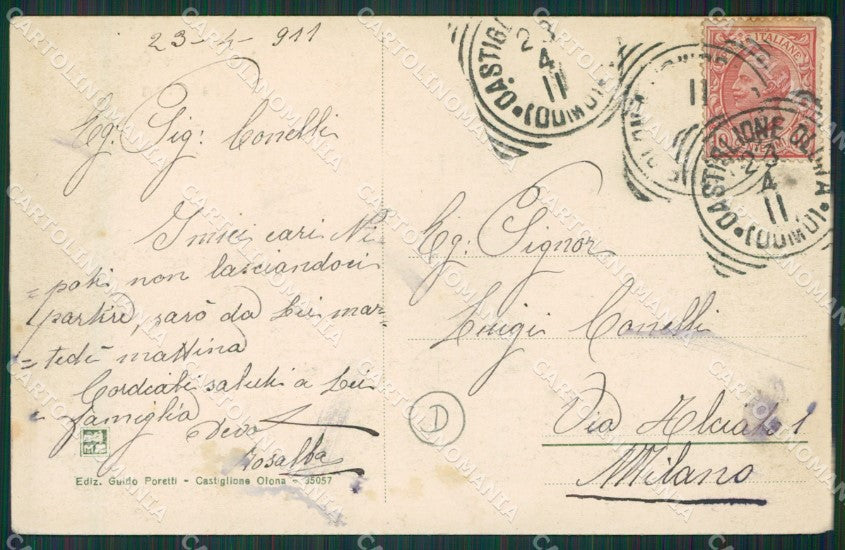 23-4-911
Eg: Sig: Conelli
I miei cari Ni
=poti non lasciandoci
partire, sarò da Lei mar=
=tedì mattina
Cordiali saluti a Lei
famiglia
Devo
Rosalba
Ediz. Guido Poretti - Castiglione Olona - 35057
Eg: Signor
Luigi Conelli
D
Via Alciato 1
Milano
23
4
11
(COMO)
11
CASTIGLIONE OLONA
23
4
11
(COMO)